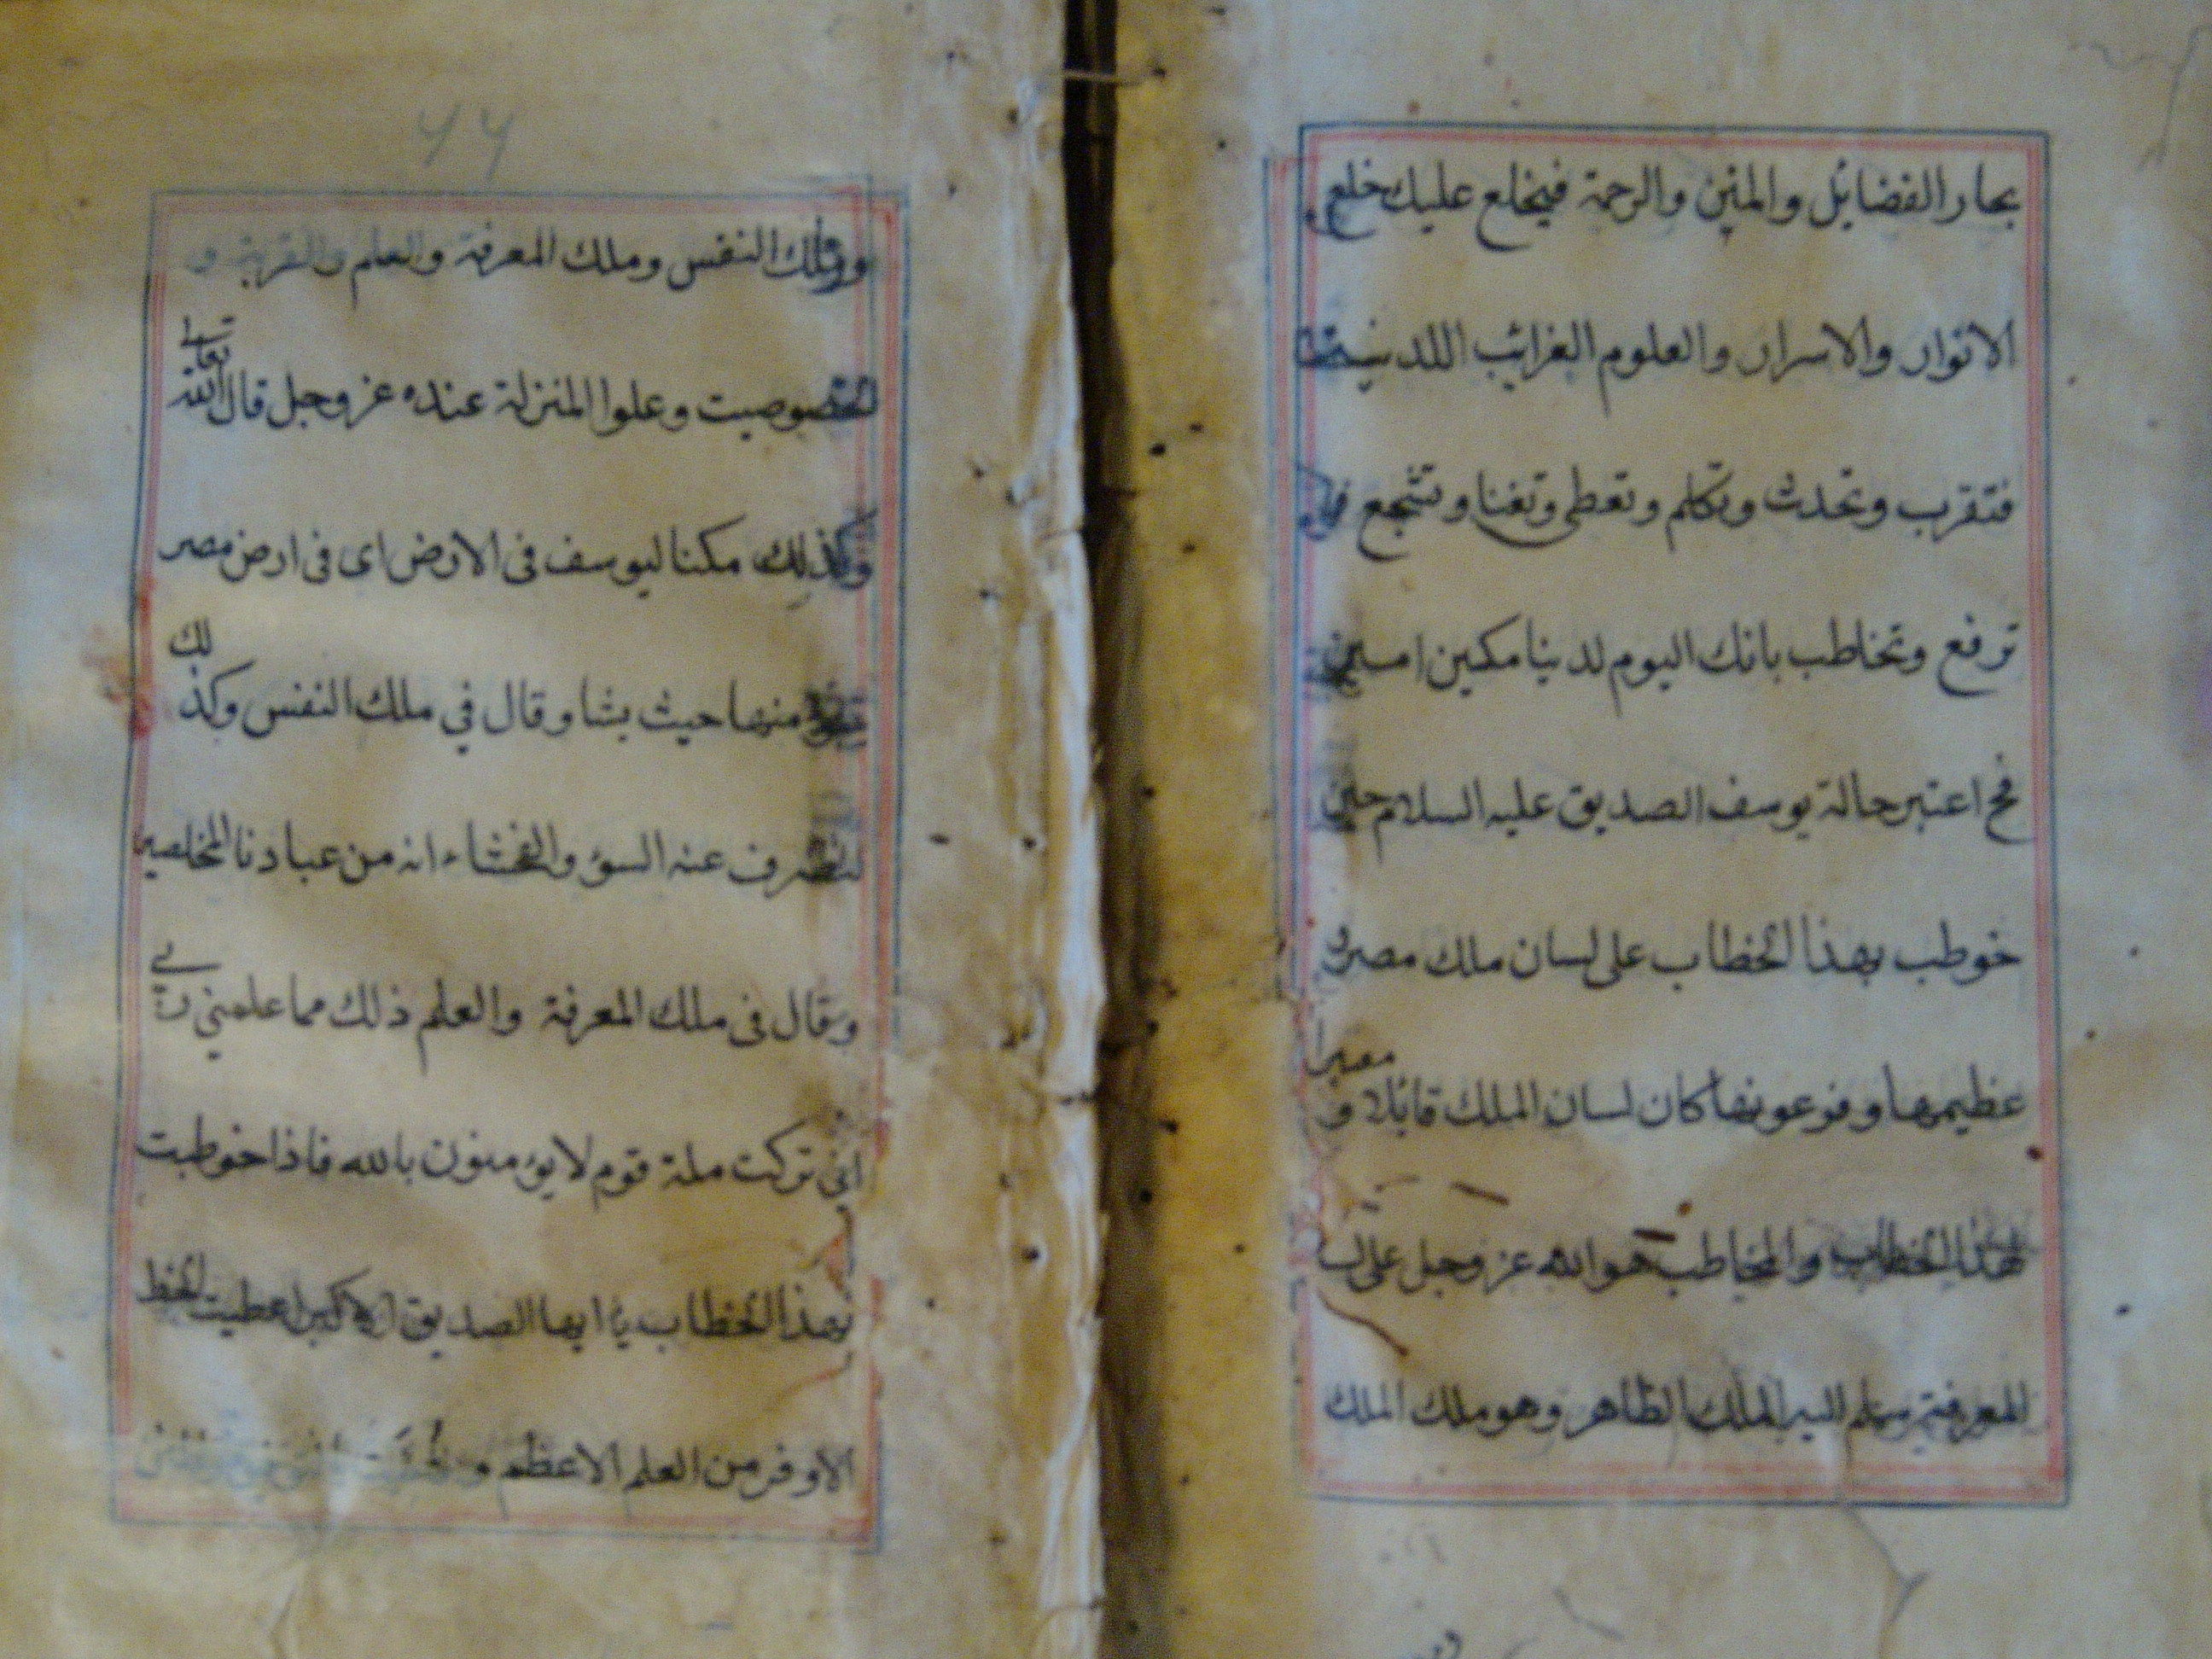 بحار الفضايل والمنن والرحمة فيخلع عليك خلع
الانوار والاسرار والعلوم الغرايب اللدنية
فتقرب وتحدث وتكلم وتعطى وتغنا وتشجع
ترفع وتخاطب بانك اليوم لدينا مكين امين
فح اعتبر حالة يوسف الصديق عليه السلام حين
خوطب بهذا الخطاب على لسان ملك مصر و
عظيمها وفرعونها كان لسان الملك قايلا و معبرا
لهذا الخطاب والمخاطب هو الله عز وجل على لسا
المعرفة سلم اليه الملك الظاهر وهو ملك الملك
٤٤
وملك النفس وملك المعرفة والعلم والقربة و
الخصوصيت وعلوا المنزلة عنده عز وجل قال الله تعالى
وكذلك مكنا ليوسف فى الارض اى فى ارض مصر
منها حيث يشا وقال في ملك النفس وكذلك
لنصرف عنه السوء والفحشاء انه من عبادنا المخلصين
وقال فى ملك المعرفة والعلم ذلك مما علمني ربي
اني تركت ملة قوم لا يومنون بالله فاذا خوطبت
بهذا الخطاب يا ايها الصديق الاكبر اعطيت الحظ
الاوفر من العلم الاعظم